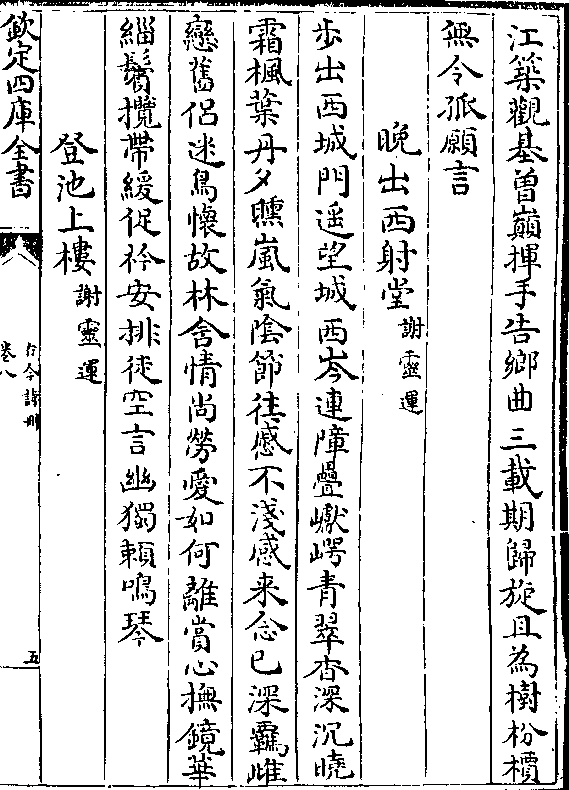 江築觀基曾巔揮手告鄉曲三載期歸旋且為樹枌檟
無令孤願言
晚出西射堂謝靈運
步出西城門遥望城西岑連障疊巘崿青翠杳深沉曉
霜楓葉丹夕曛嵐氣陰節往慼不淺感来念已深羈雌
戀舊侣迷鳥懷故林含情尚勞愛如何離賞心撫鏡華
緇鬢攬帶緩促衿安排徒空言幽獨頼鳴琴
登池上樓謝靈運
欽定四庫全書
古今詩刪
卷八
五